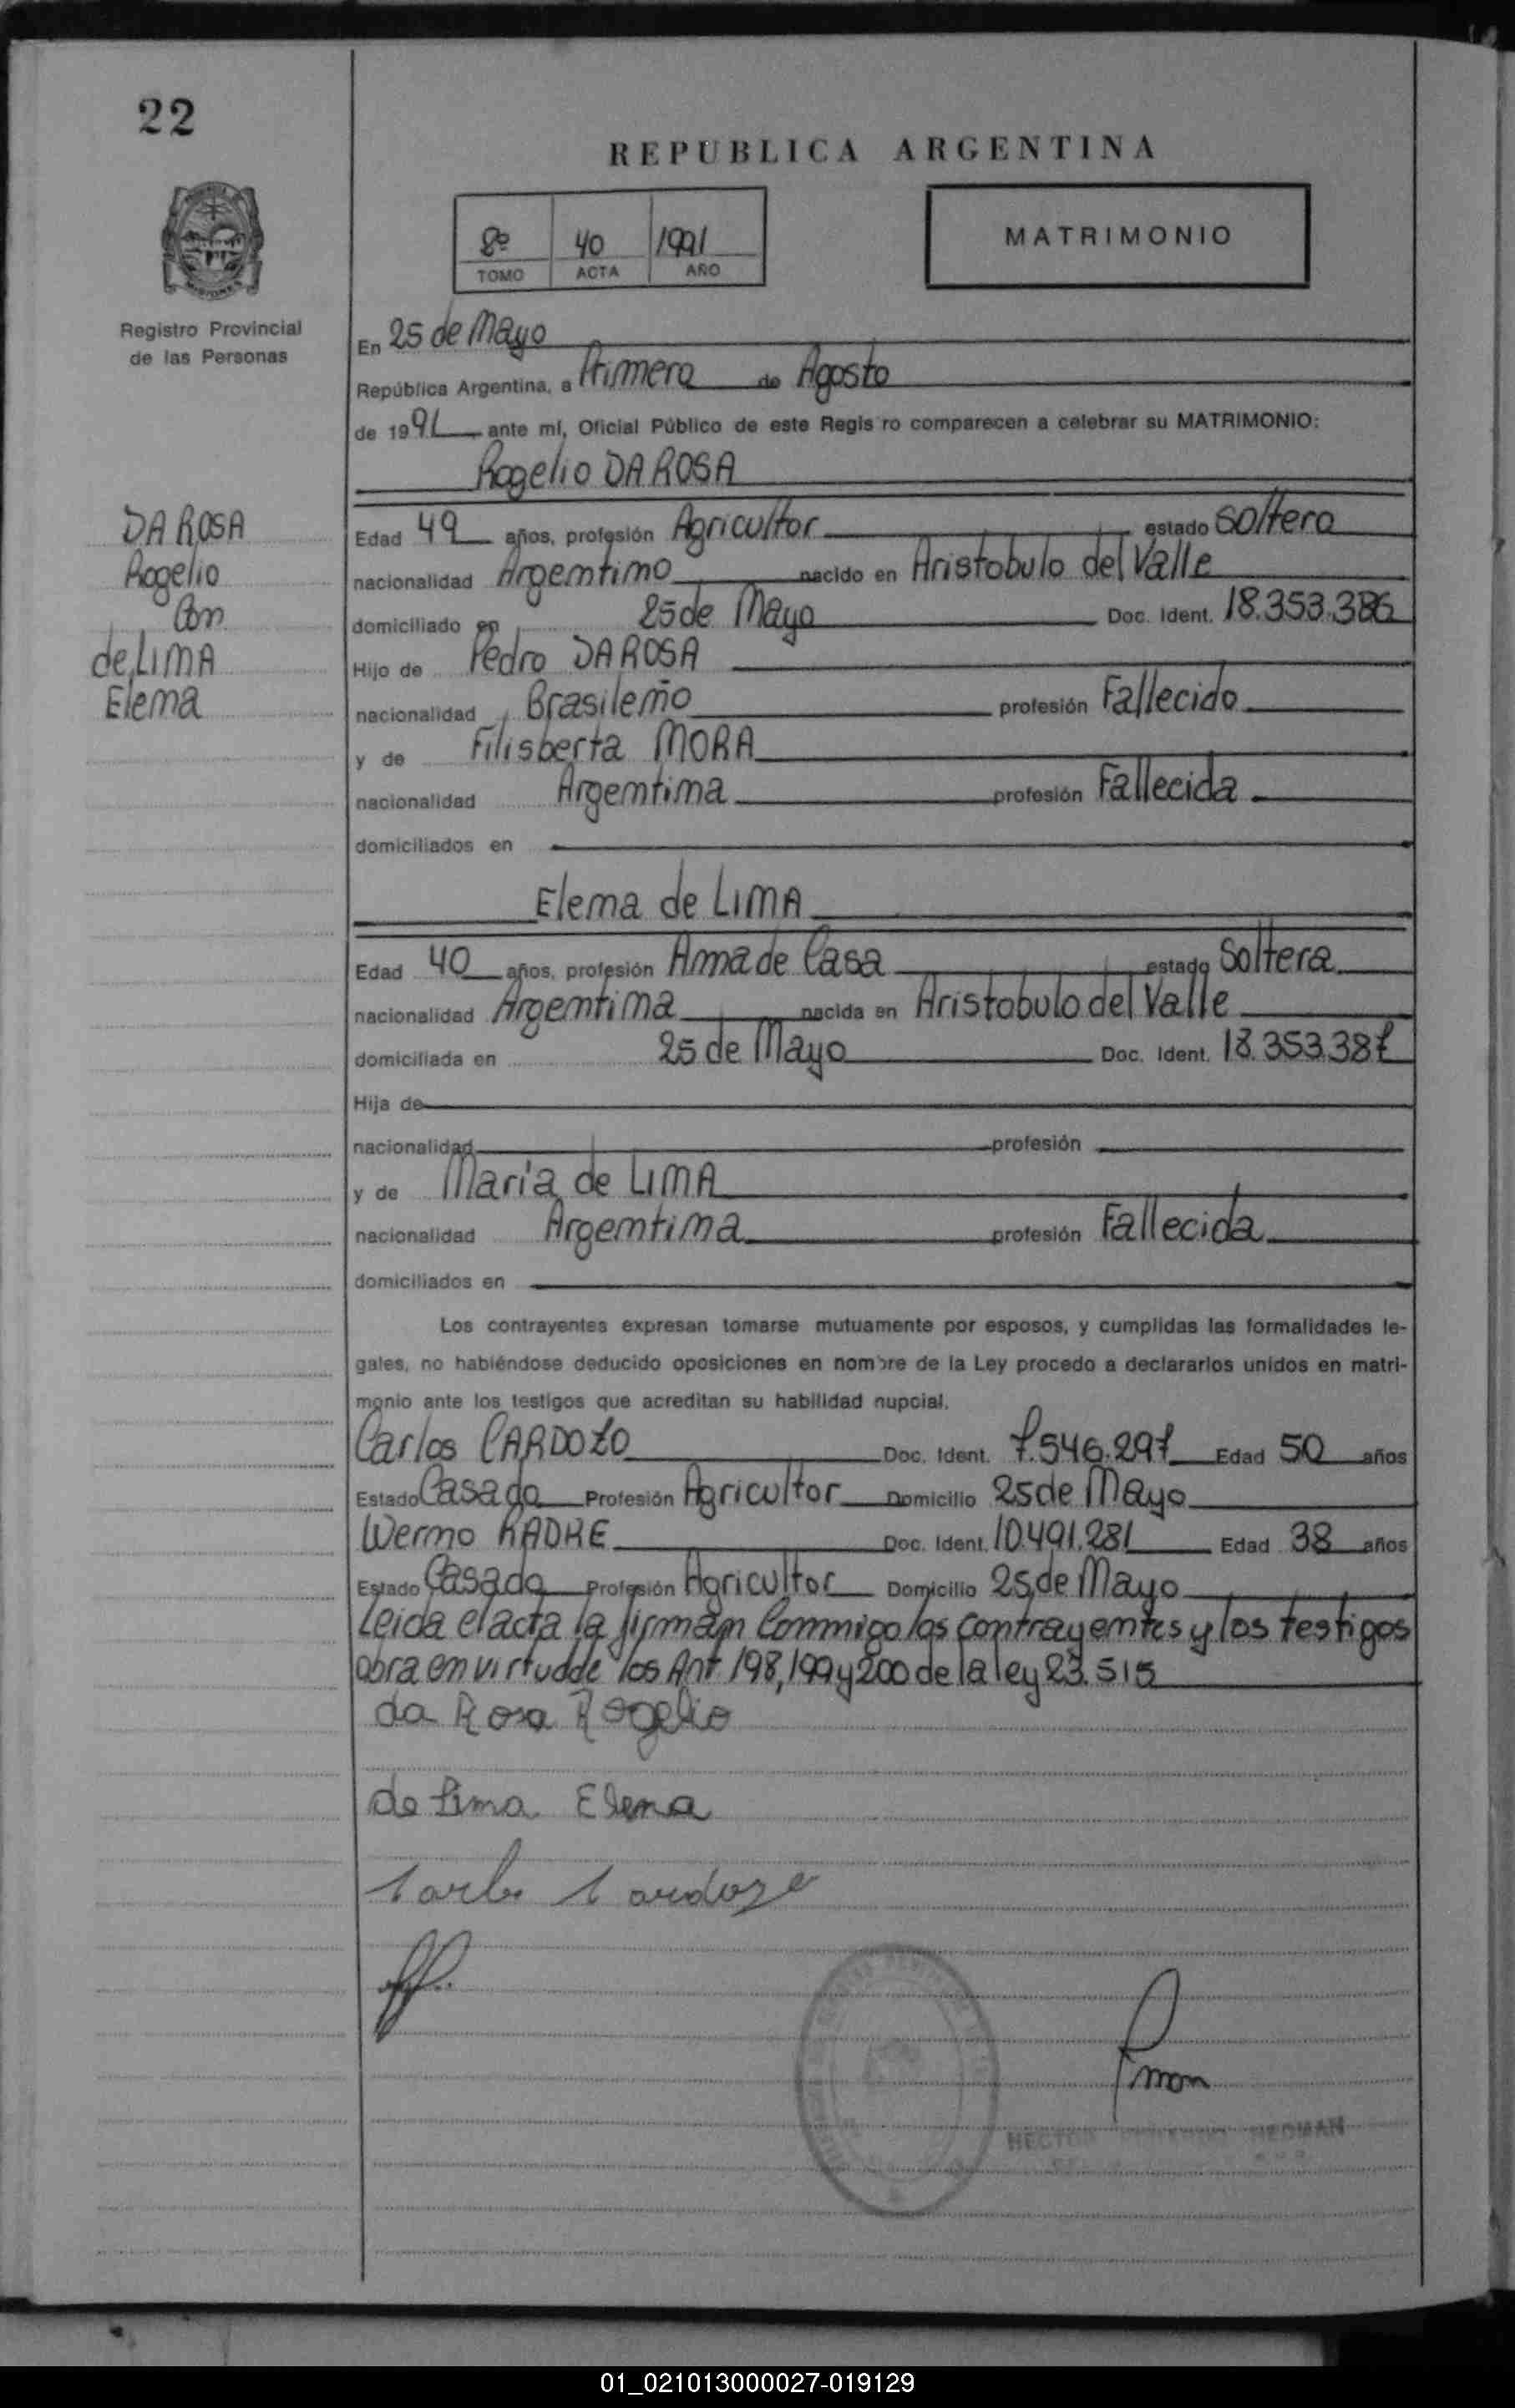 22
REPUBLICA ARGENTINA
8º 40 1991
TOMO ACTA AÑO
MATRIMONIO
MISIONES
Registro Provincial
de las Personas
En 25 de Mayo
República Argentina, a Primero de Agosto
de 1991 ante mí, Oficial Público de este Regis ro comparecen a celebrar su MATRIMONIO:
Rogelio DA ROSA
DA ROSA
Rogelio
Con
de LIMA
Elema
Edad 49 años, profesión Agricultor estado Soltero
nacionalidad Argemtimo nacido en Aristobulo del Valle
domiciliado en 25 de Mayo Doc. Ident. 18.353.386
Hijo de Pedro DA ROSA
nacionalidad Brasilemo profesión Fallecido
y de Filisberta MORA
nacionalidad Argemtima profesión Fallecida
domiciliados en
Elema de LIMA
Edad 40 años, profesión Ama de Casa estado Soltera
nacionalidad Argemtima nacida en Aristobulo del Valle
domiciliada en 25 de Mayo Doc. Ident. 18.353.387
Hija de
nacionalidad profesión
y de María de LIMA
nacionalidad Argemtima profesión Fallecida
domiciliados en
Los contrayentes expresan tomarse mutuamente por esposos, y cumplidas las formalidades le-
gales, no habiéndose deducido oposiciones en nombre de la Ley procedo a declararlos unidos en matri-
monio ante los testigos que acreditan su habilidad nupcial.
Carlos CARDOZO Doc. Ident. 7.546.297 Edad 50 años
Estado Casado Profesión Agricultor Domicilio 25 de Mayo
Wermo RADKE Doc. Ident. 10.491.281 Edad 38 años
Estado Casado Profesión Agricultor Domicilio 25 de Mayo
Leida el acta la firmam Commigo los contrayemtes y los testigos
obra em virtud de los Art 198, 199 y 200 de la ley 23.515
da Rosa Rogelio
de Lima Elena
Carlos Cardozo
HECTOR
01_021013000027-019129